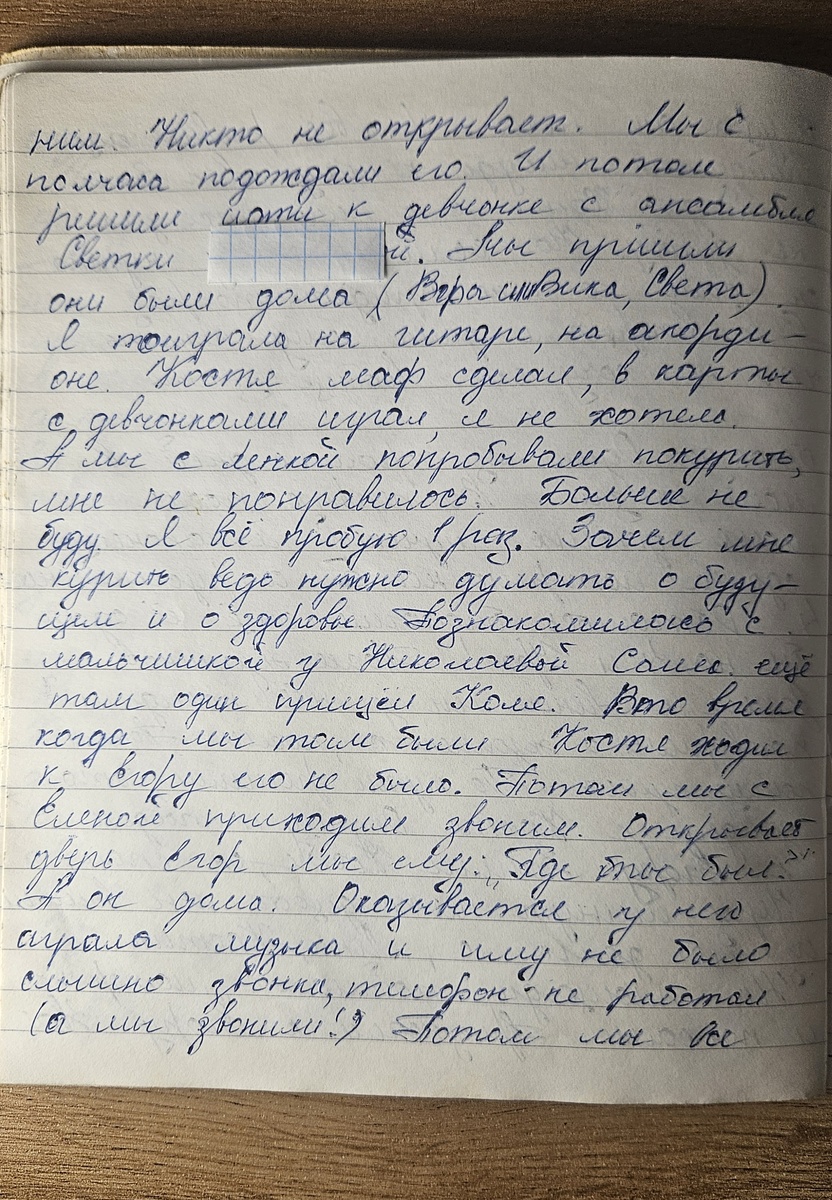 ним. Никто не открывает. Мы с
полчаса подождали его. И потом
решили идти к девчонке с ансамбля
Светки й. Мы пришли
они были дома (Вера или Вика, Света).
Я поиграла на гитаре, на акорди-
оне. Костя маф сделал, в карты
с девчонками играл, я не хотела.
А мы с Ленкой попробывали покурить,
мне не понравилось. Больше не
буду. Я всё пробую 1 раз. Зачем мне
курить ведь нужно думать о буду-
щем и о здоровье. Познакомилась с
мальчишкой у Николаевой Саша. ещё
там один пришёл Коля. В то время
когда мы там были Костя ходил
к Егору его не было. Потом мы с
Еленой приходим звоним. Открывает
дверь Егор мы ему: „Где ты был?"
А он дома. Оказывается у него
играла музыка и ему не было
слышно звонка, телефон не работал
(а мы звонили!) Потом мы все